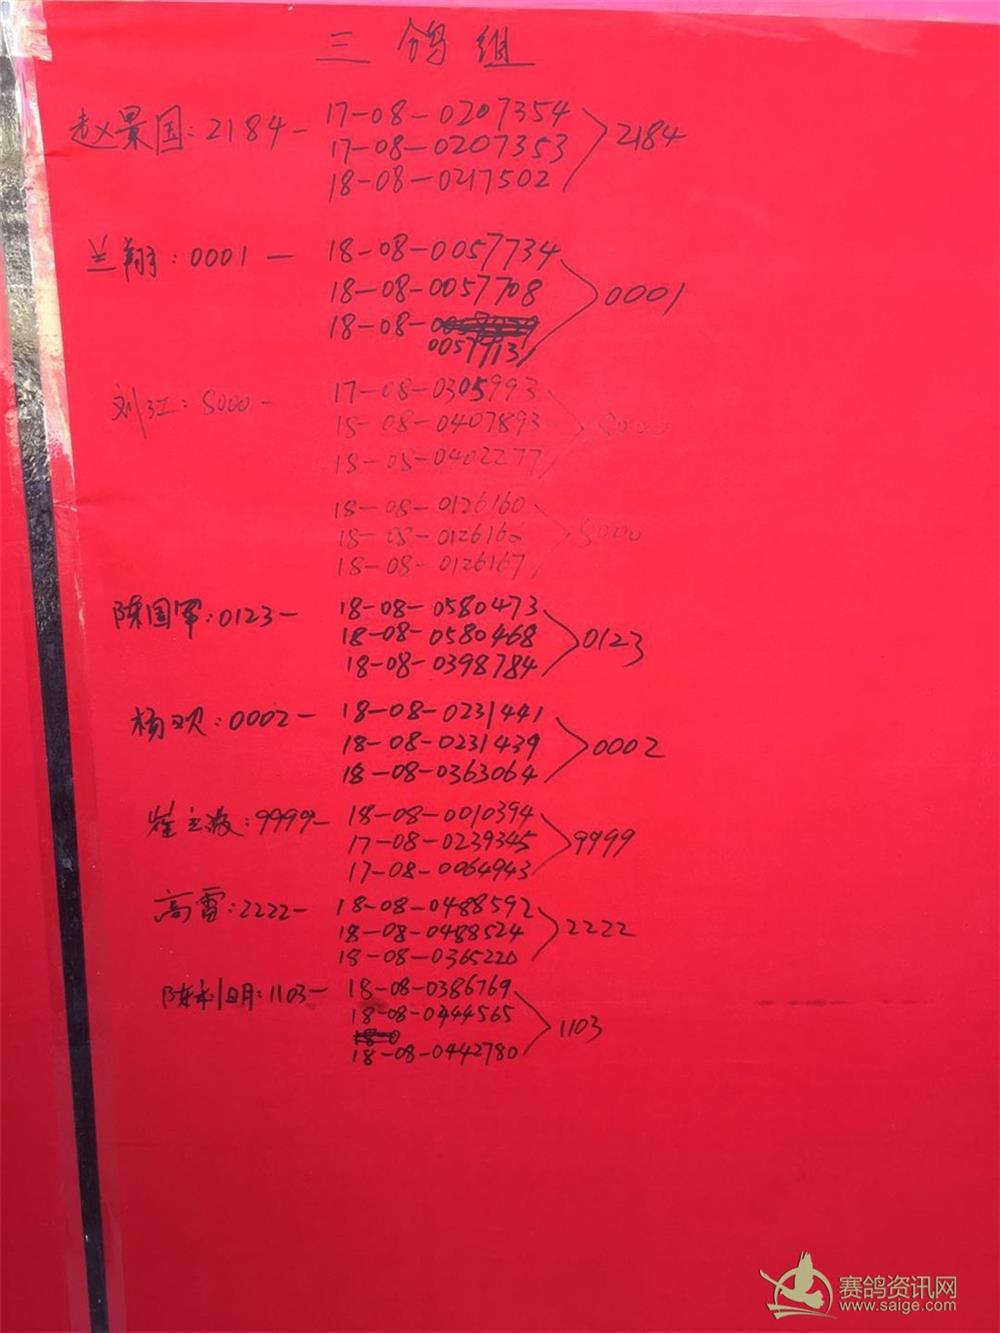 三鸽组
赵景国:2184- 17-08-0207354
17-08-0207353 2184
18-08-0217502
兰翔:0001- 18-08-0057734
18-08-0057708 0001
18-08-
0057731
刘江:8000- 17-08-0305993
18-08-0407893 8000
18-08-0402277
18-08-0126160
18-08-0126166 8000
18-08-0126167
陈国军:0123- 18-08-0580473
18-08-0580468 0123
18-08-0398784
杨欢:0002- 18-08-0231441
18-08-0231439 0002
18-08-0363064
崔立波:9999- 18-08-0010394
17-08-0239345 9999
17-08-0064943
高雷:2222- 18-08-0488592
18-08-0488524 2222
18-08-0365220
陈利明:1103- 18-08-0386769
18-08-0444565 1103
18-08-0442780
赛鸽资讯网
www.saige.com